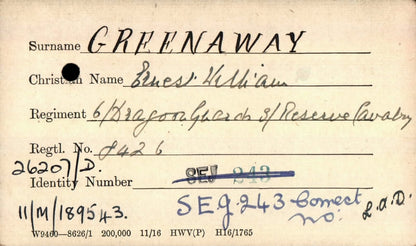 Surname GREENAWAY
Christian Name Ernest William
Regiment 6/Dragoon Guards 3/Reserve Cavalry
Regtl. No. 8426
26207/D.
Identity Number SEJ 243
SEJ 243 Correct
11/M/189543. no: L.A.D.
W9460—8626/1 200,000 11/16 HWV(P) H16/1765